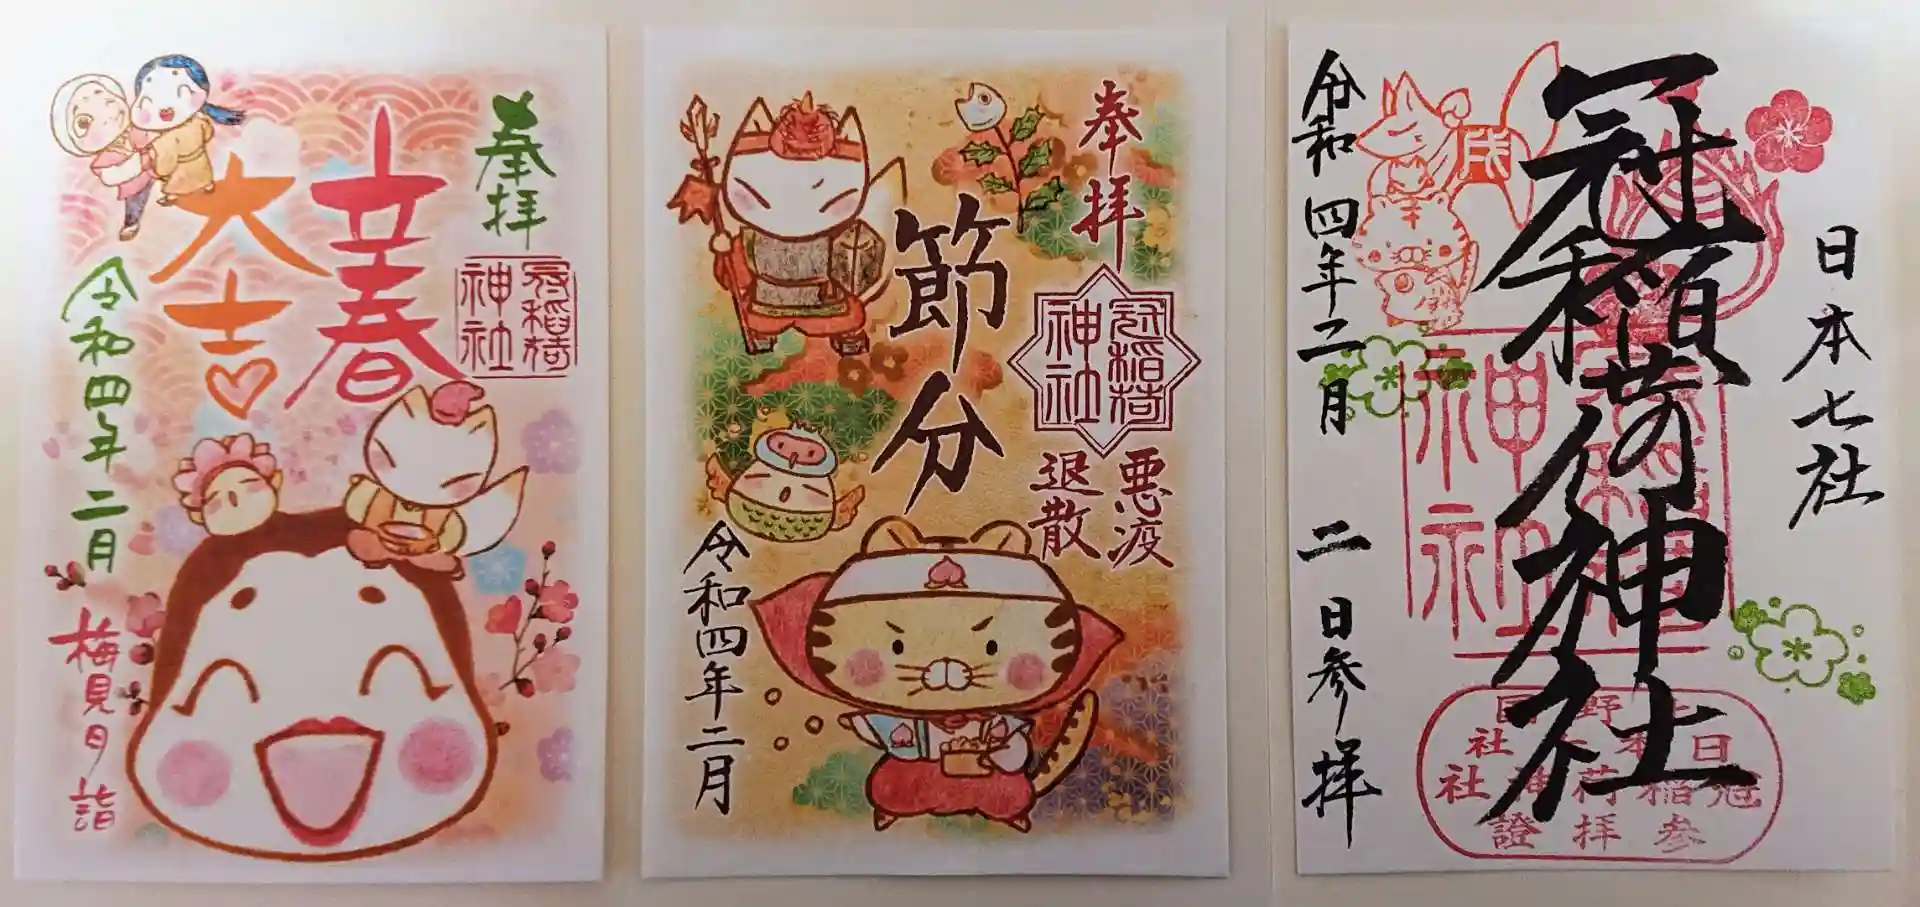 奉拝
立春
大吉
冠稲荷
神社
令和四年 二月
梅見月詣
奉拝
節分
冠稲荷
神社
悪疫
退散
令和四年二月
日本七社
冠稲荷神社
令和四年二月 二日参拝
戌
冠稲荷
神社
日本七社
冠稲荷神社
参拝證